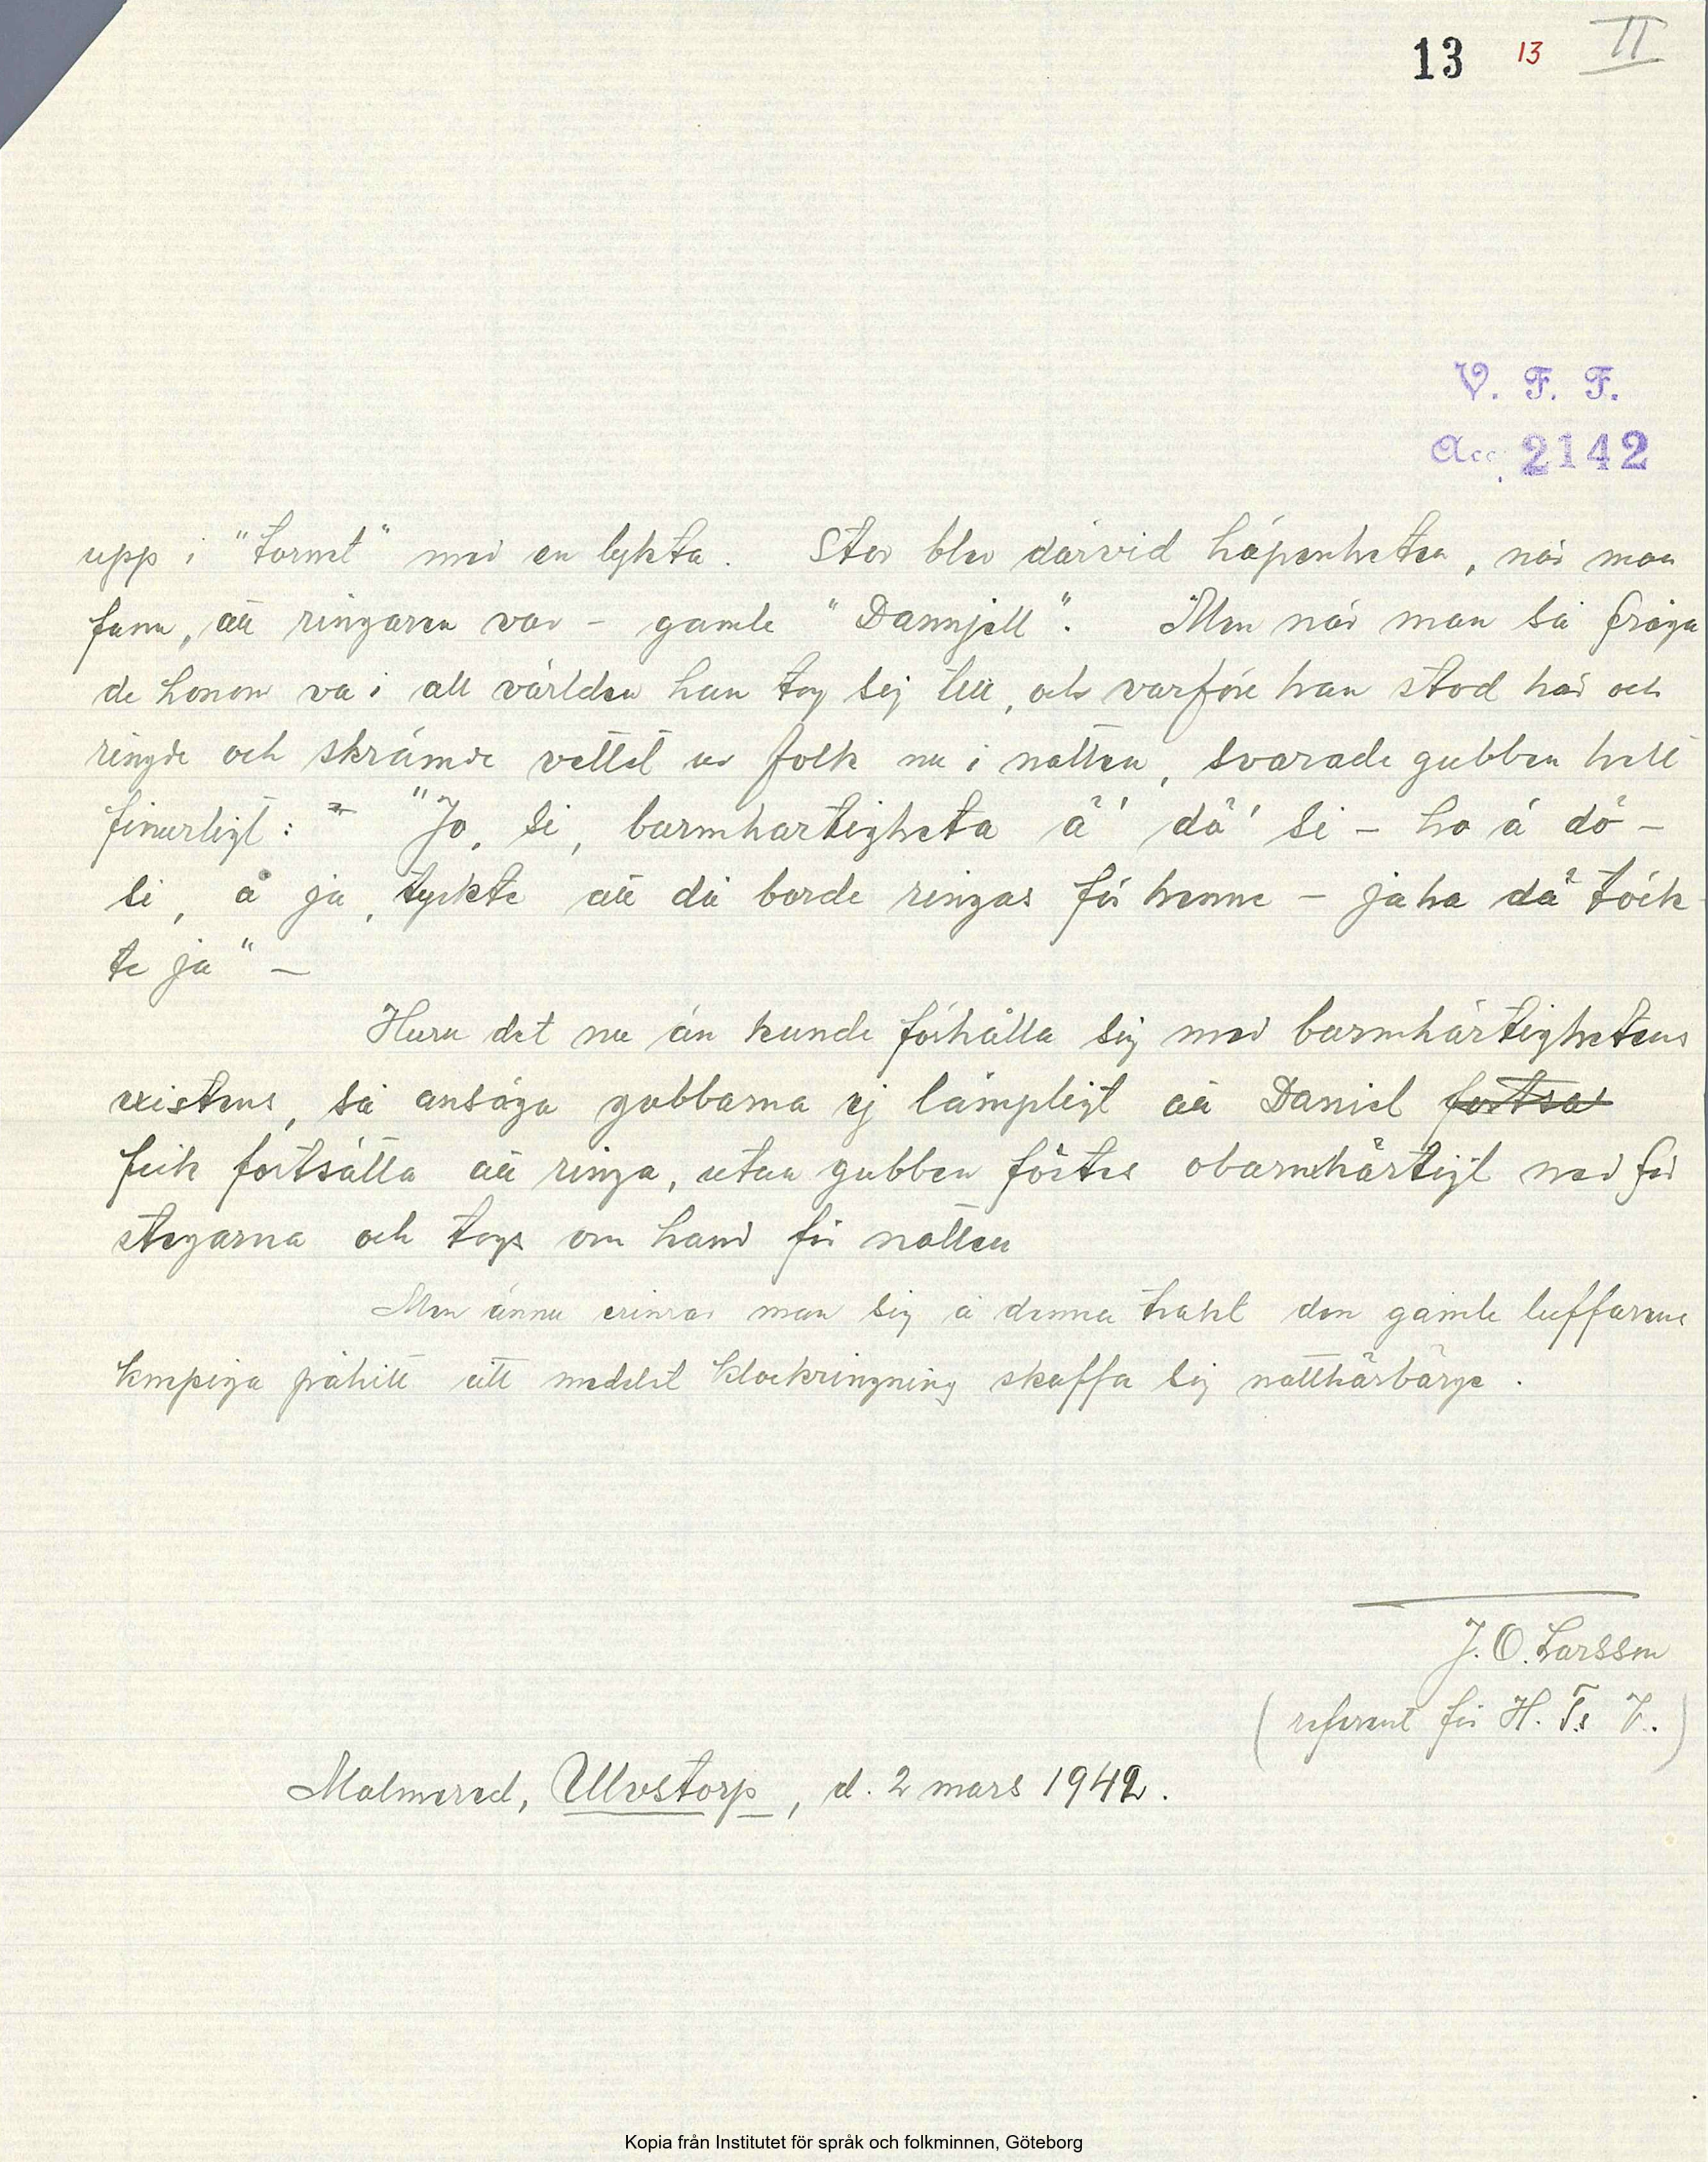 13 13 II
V. F. F.
Acc. 2142
upp i "tornet" med en lykta. Stor blev därvid häpenheten, när man
fann, att ringaren var – gamle "Dannjell". Men när man så fråga
de honom va i all världen han tog sej till, och varföre han stod här och
ringde och skrämde vettet ur folk nu i natten, svarade gubben helt
finurligt: – "Jo, si, barmhartigheta ä' dö' si – ho ä dö –
si, å ja, tyckte att dä borde ringas för henne – jaha dä töck
te ja" –
Huru det nu än kunde förhålla sig med barmhärtighetens
existens, så ansåga gubbarna ej lämpligt att Daniel fortsat
fick fortsätta att ringa, utan gubben fördes obarmhärtigt ned för
stegarna och togs om hand för natten
Men ännu erinrar man sig å denna trakt den gamle luffarens
knepiga påhitt att medelst klockringning skaffa sig natthärbärge.
J. O. Larsson
(referent för H. T:s V.)
Malmered, Ulvstorp, d. 2 mars 1942.
Kopia från Institutet för språk och folkminnen, Göteborg